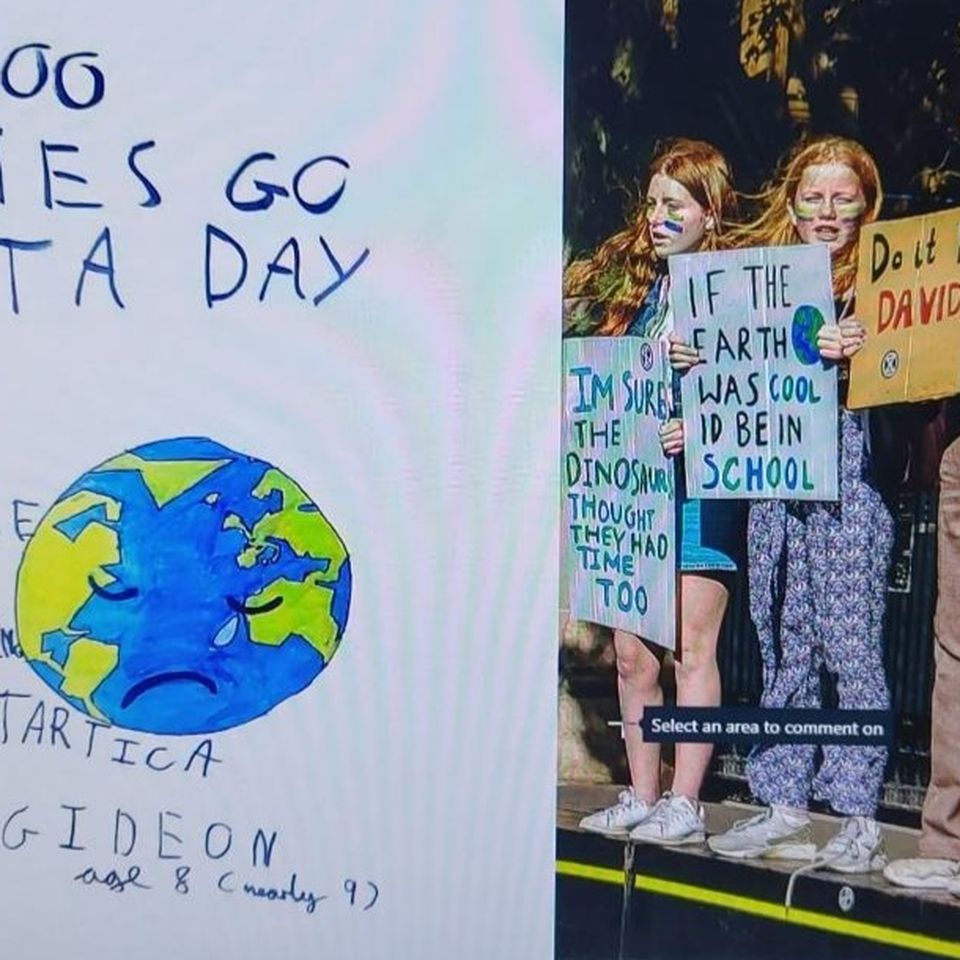 00
IES GO
T A DAY
E
TARTICA
GIDEON
age 8 (nearly 9)
IM SURE
THE
DINOSAURS
THOUGHT
THEY HAD
TIME
TOO
IF THE
EARTH
WAS COOL
ID BE IN
SCHOOL
Do it
DAVID
Select an area to comment on